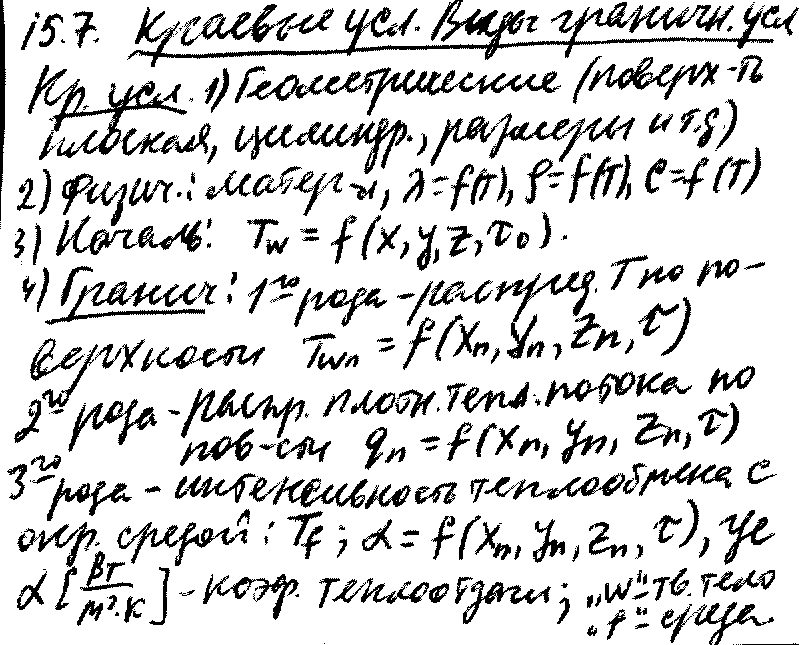 15.7. Краевые усл. Виды граничн. усл
Кр. усл. 1) Геометрические (поверх-ть
плоская, цилиндр., размеры и т.д)
2) Физич.: матер-л, λ=f(T), ρ=f(T), C=f(T)
3) Началь: Tw = f(x, y, z, τ₀).
4) Гранич: 1го рода - распред. T по по-
верхности Twn = f(xn, yn, zn, τ)
2го рода - распр. плотн. тепл. потока по
пов-сти qn = f(xn, yn, zn, τ)
3го рода - интенсивность теплообмена с
окр. средой: Tf; α = f(xn, yn, zn, τ), где
α [Вт/м²·К] - коэф. теплоотдачи; „w"- тв. тело
„f"- среда.